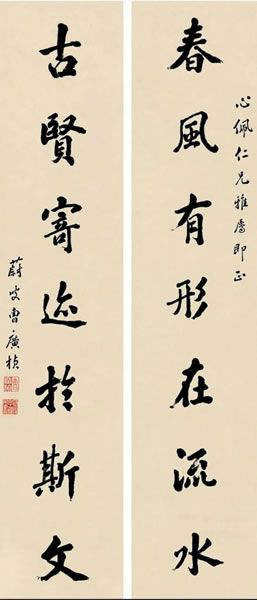 春風有形在流水
心佩仁兄雅屬即正
古賢寄迹於斯文
蔚叟曹廣楨